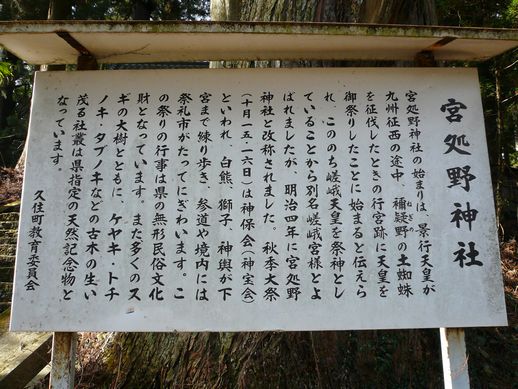 宮処野神社
宮処野神社の始まりは、景行天皇が
九州征西の途中、禰疑野の土蜘蛛
ねぎの
を征伐したときの行宮跡に天皇を
御祭りしたことに始まると伝えら
れ、こののち嵯峨天皇を祭神とし
ていることから別名嵯峨宮様とよ
ばれましたが、明治四年に宮処野
神社と改称されました。秋季大祭
(十月一五・一六日)は神保会(神宝会)
といわれ、白熊、獅子、神輿が下
宮まで練り歩き、参道や境内には
祭礼市がたってにぎわいます。こ
の祭りの行事は県の無形民俗文化
財となっています。また多くのス
ギの大樹とともに、ケヤキ・トチ
ノキ・タブノキなどの古木の生い
茂る社叢は県指定の天然記念物と
なっています。
久住町教育委員会